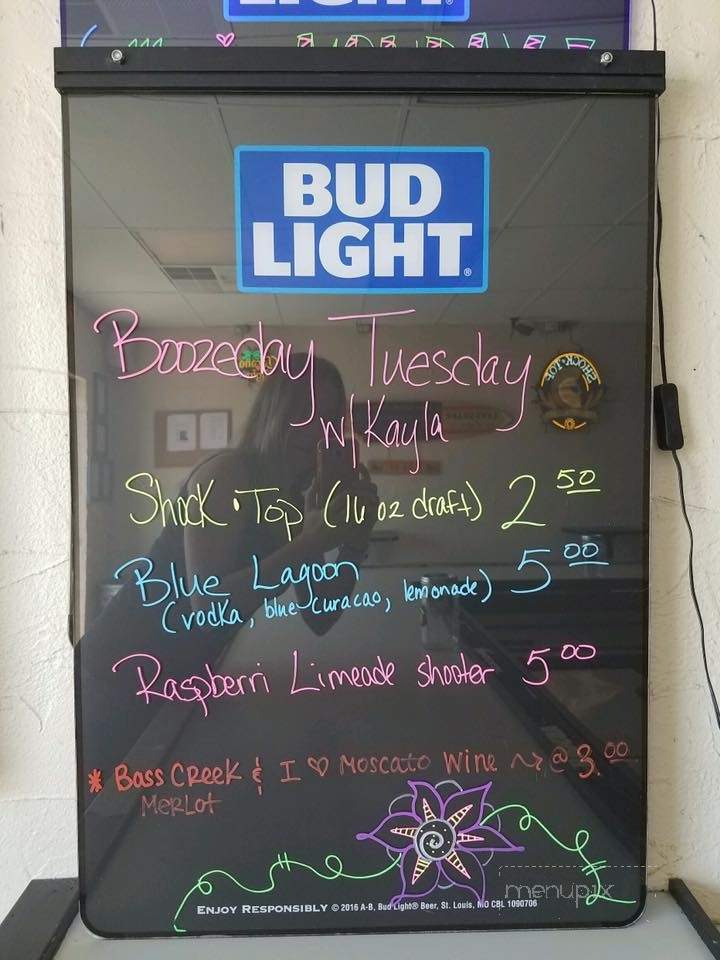 LIGHT
BUD
LIGHT®
Boozeday Tuesday
w/ Kayla
SHOCK TOP
Shock•Top (16 oz draft) 2 50
Blue Lagoon 5 00
(vodka, blue curacao, lemonade)
Raspberri Limeade shooter 5 00
* Bass Creek & I ♡ Moscato Wine ~> @ 3.00
Merlot
menupix
ENJOY RESPONSIBLY © 2016 A-B, Bud Light® Beer, St. Louis, MO CBL 1090706